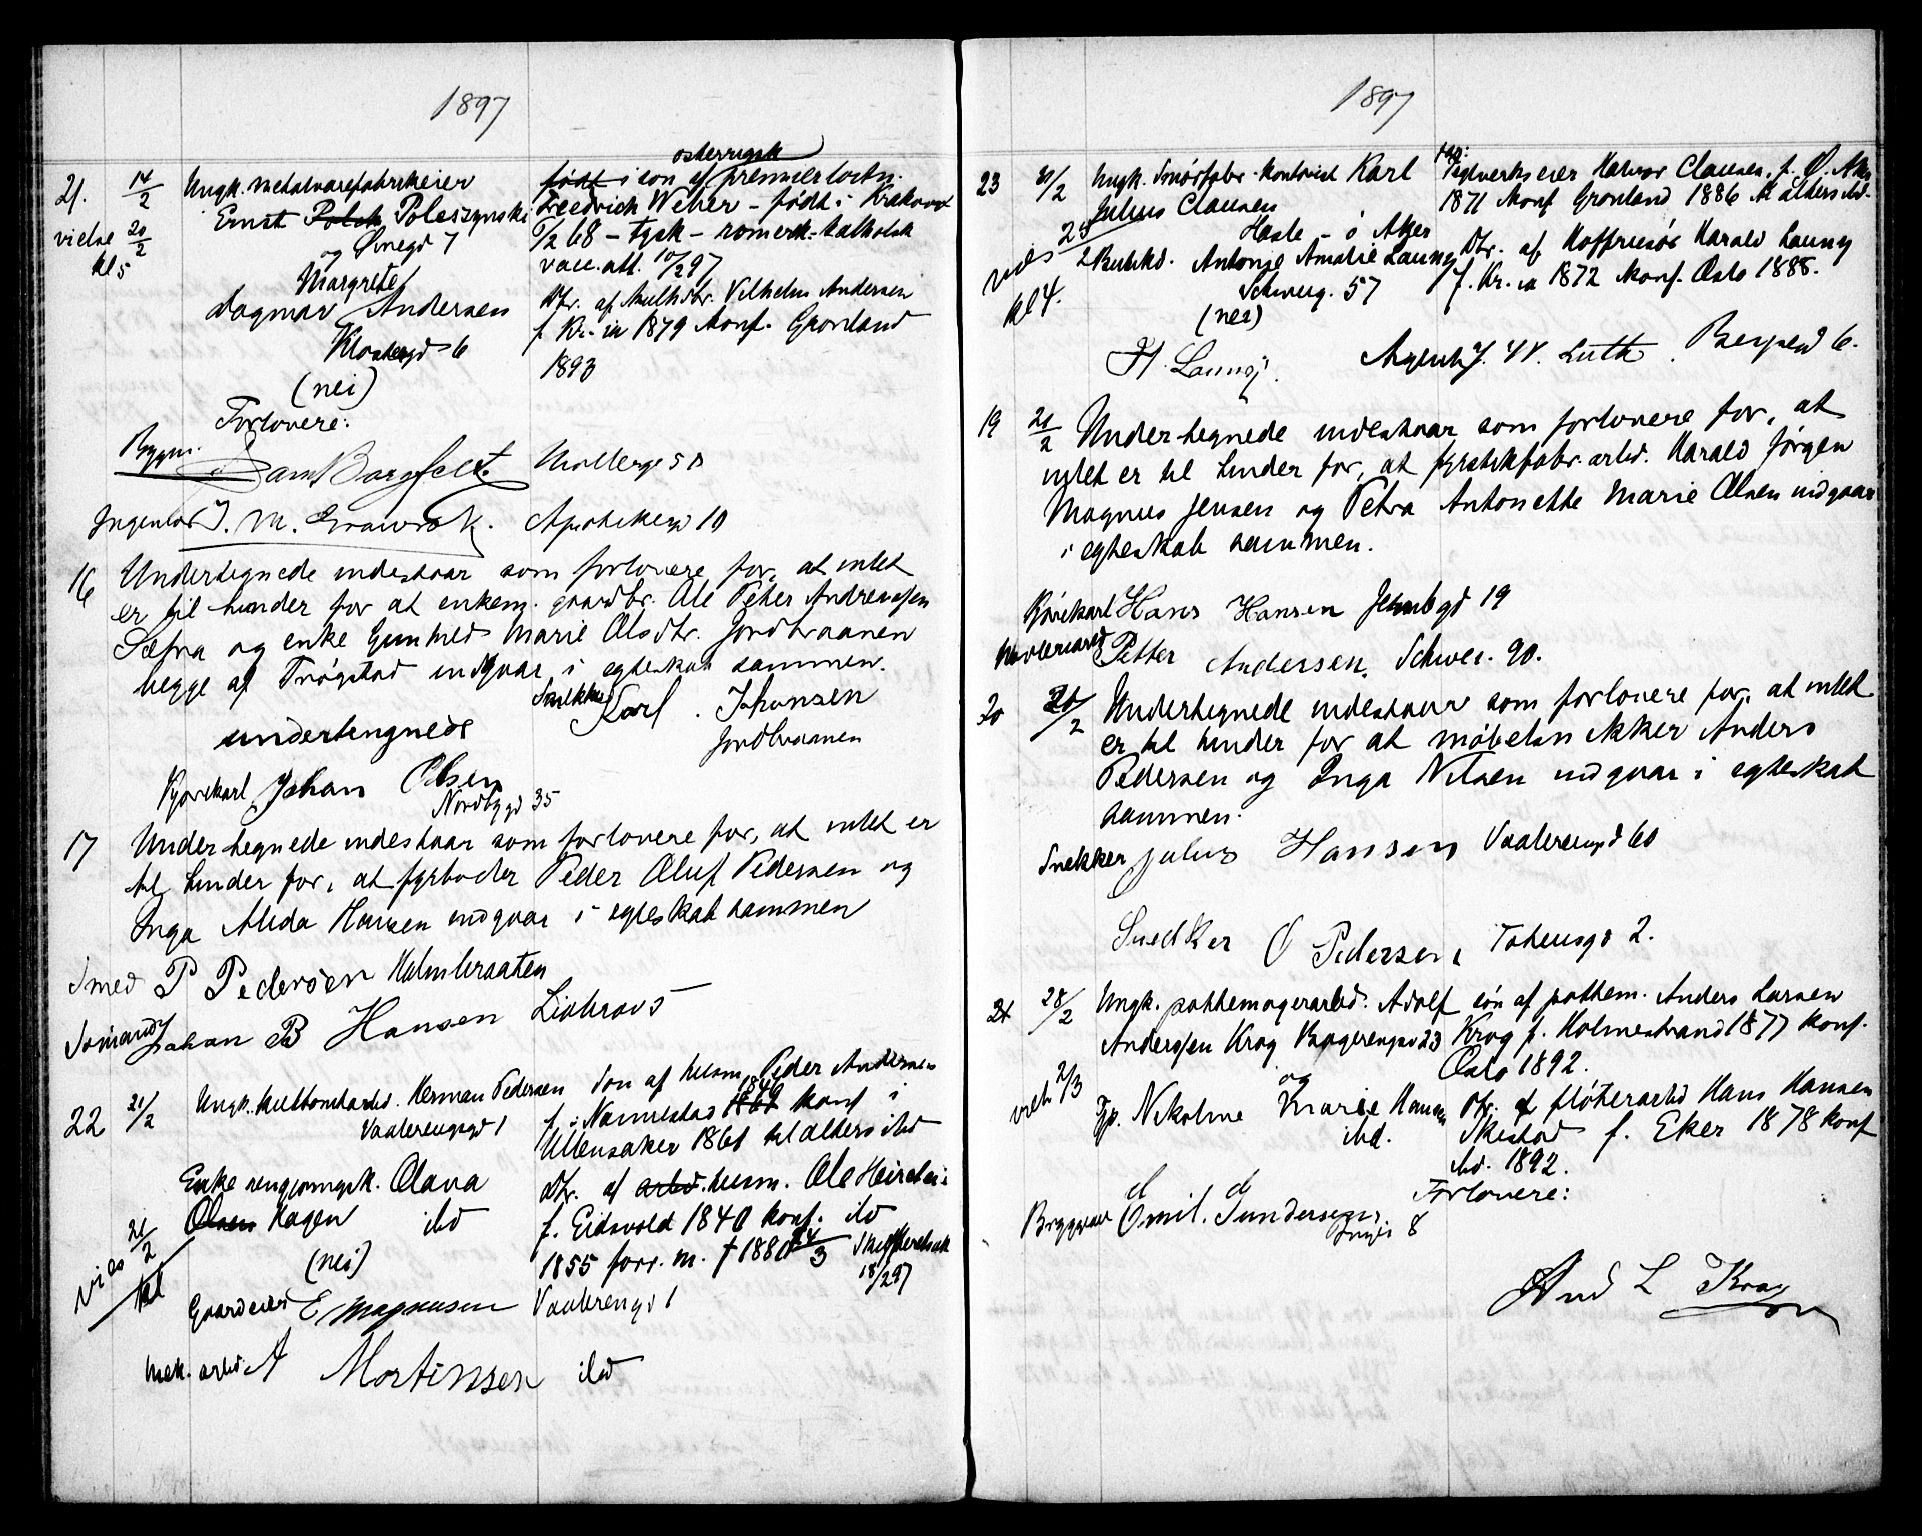 1897
21. 14/2 Ungk. metalvarefabrikeier
Ernst Poleszynski
Smegd 7
og
Margrete
Dagmar Andersen
Klostergd 6
(nei)
vielse 20/2
kl 5
østerrigsk
født i søn af premierløitn.
Friedrich Weber – født i Krakau
/2 68 – tysk – romersk-katholsk
vacc. att. 10/2 97
Dtr. af Vilhelm Andersen
f. Kr.ia 1879 konf. Grønland
1893
Forlovere:
Byggm. Borgfeldt
Møllerg 58
Ingeniør J. M. Apothekergd 10
16 Undertegnede indestaar som forlovere for, at intet
er til hinder for at enkem. gaardbr. Ole Peter Andreassen
Sæfra og enke Gunhild Marie Olsdtr. Jordbraanen
begge af Trøgstad indgaar i egteskab sammen.
undertegnede
Snekker Karl Johansen
Jordbraanen
Kjørekarl Johan Olsen
Nordbygd 35
17 Undertegnede indestaar som forlovere for, at intet er
til hinder for, at fyrbøder Peder Oluf Pedersen og
Inga Alida Hansen indgaar i egteskab sammen
Smed P Pedersen Holmbraaten
Sømand Johan B Hansen Liabro
22 21/2 Ungk. Herman Pedersen
Vaalerengagd 1
Enke rengjøringsk. Olava
Olsen Hagen ibd
(nei)
vies 21/2
kl
Søn af husm. Peder Andersen
f. i Nannestad 1840 konf i
Ullensaker 1861 til alters ibd
Dtr. af arbd. husm. Ole
f. Eidsvold 1840 konf. ibd
1855 forr. m. † 1880 24/3 Skifteattest
18/2 97
Gaardeier E. Magnussen Vaalerengd 1
Mek. arbd. A Mortinsen ibd
1897
23 21/2 Ungk. kontorist Karl
Julius Clausen
Hasle – ø Aker
Butikd. Antonie Amalie Launy
Schweig. 57
(nei)
vies 25/2
kl 4.
Teglverkseier Halvor Clausen, f. Ø. Aker
1871 konf Grønland 1886 til alters ibd.
Dtr. af Harald Launy
f. Kr.ia 1872 konf. Oslo 1888.
H. Launy.
Agent J. Luth. Bergsgd 6.
19 21/2 Undertegnede indestaar som forlovere for, at
intet er til hinder for, at fyrstikfabr. arbd. Harald Jørgen
Magnus Jensen og Petra Antonette Marie Olsen indgaar
i egteskab sammen.
Kjørekarl Hans Hansen Jernbgd 19
Petter Andersen, Schwei. 90.
20 26/2 Undertegnede indestaar som forlovere for, at intet
er til hinder for at møbelsnikker Anders
Pedersen og Inga Nilsen indgaar i egteskab
sammen.
Snekker Julius Hansen Vaalerengd 60
Snedker O Pedersen, Tøiensgd 2.
24 28/2 Ungk. pottemagerarbd. Adolf
Anderssen Krog 23
og
Fp. Nikoline Marie Hansen
ibd.
vielse 2/3
søn af pottem. Anders Larsen
Krog f. Holmestrand 1877 konf.
Oslo 1892.
Dtr. af fløterarbd Hans Hansen
Skistad f. Eker 1878 konf
ibd. 1892.
Forlovere:
Bryggearb Emil Gundersen,
8
And L Krog